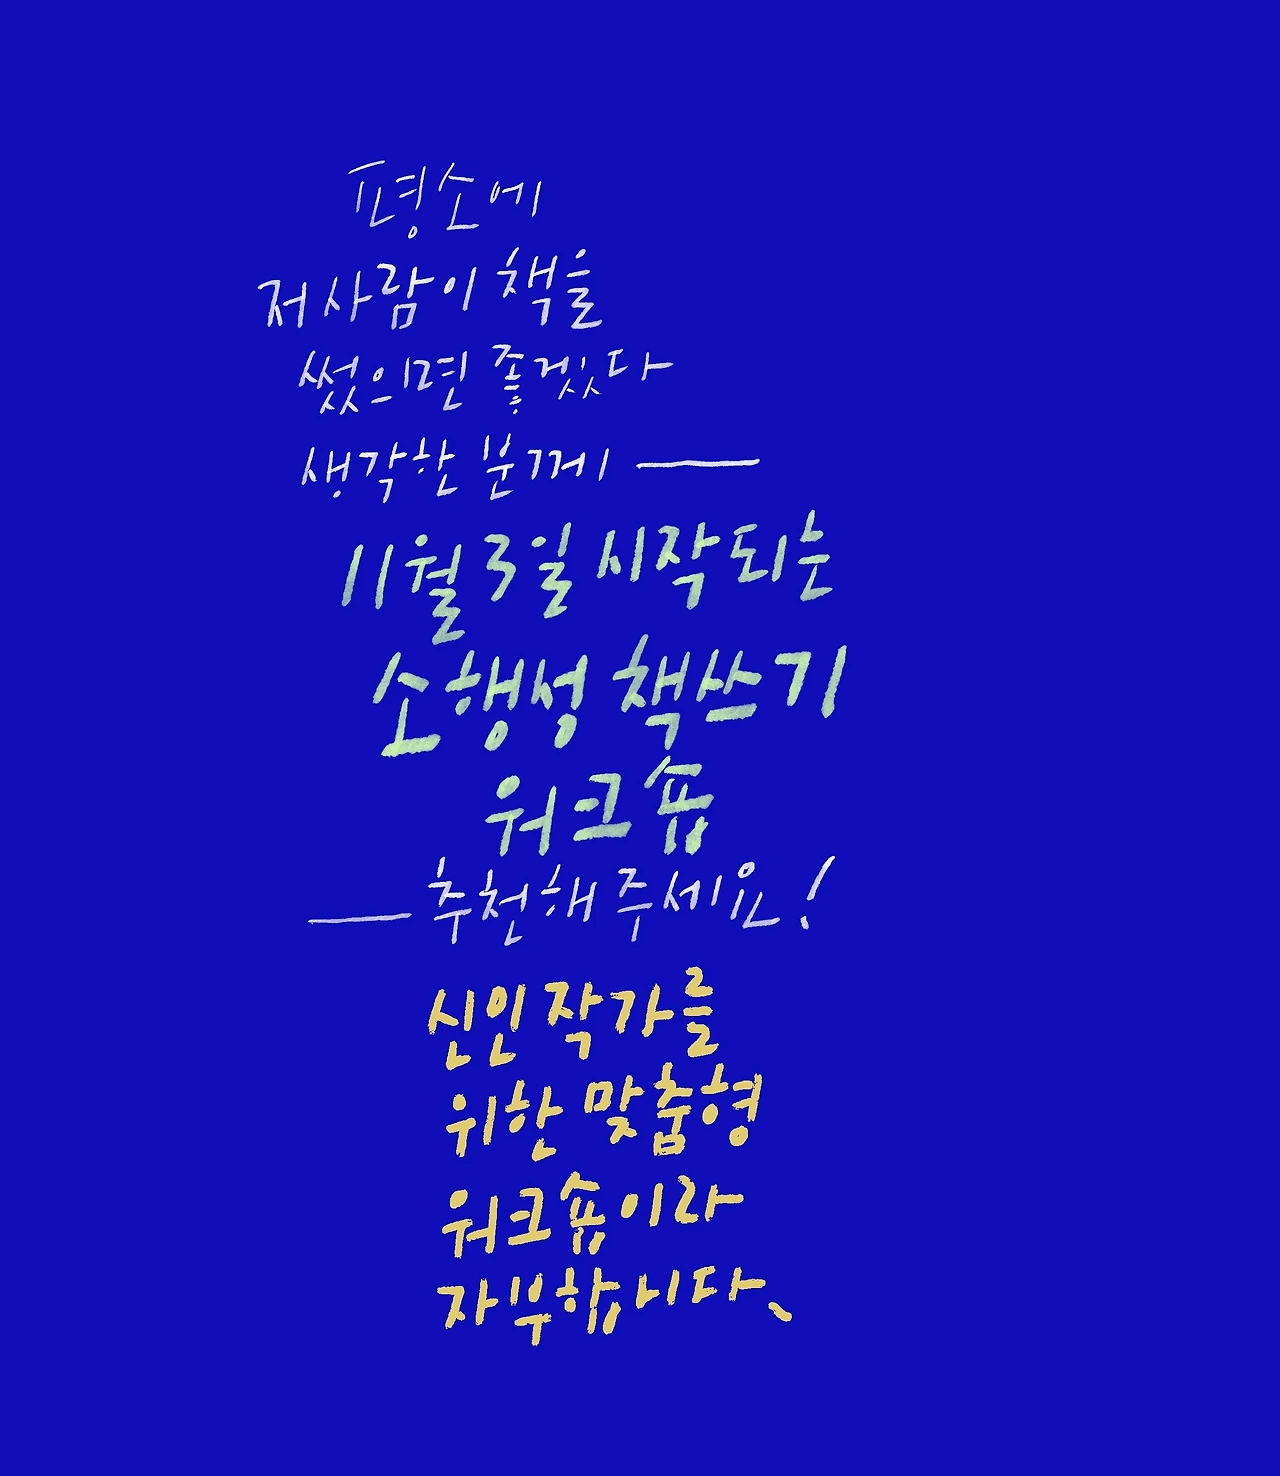 평소에
저 사람이 책을
썼으면 좋겠다
생각한 분께 —
11월 3일 시작되는
소행성 책쓰기
워크숍
— 추천해 주세요!
신인 작가를
위한 맞춤형
워크숍이라
자부합니다.